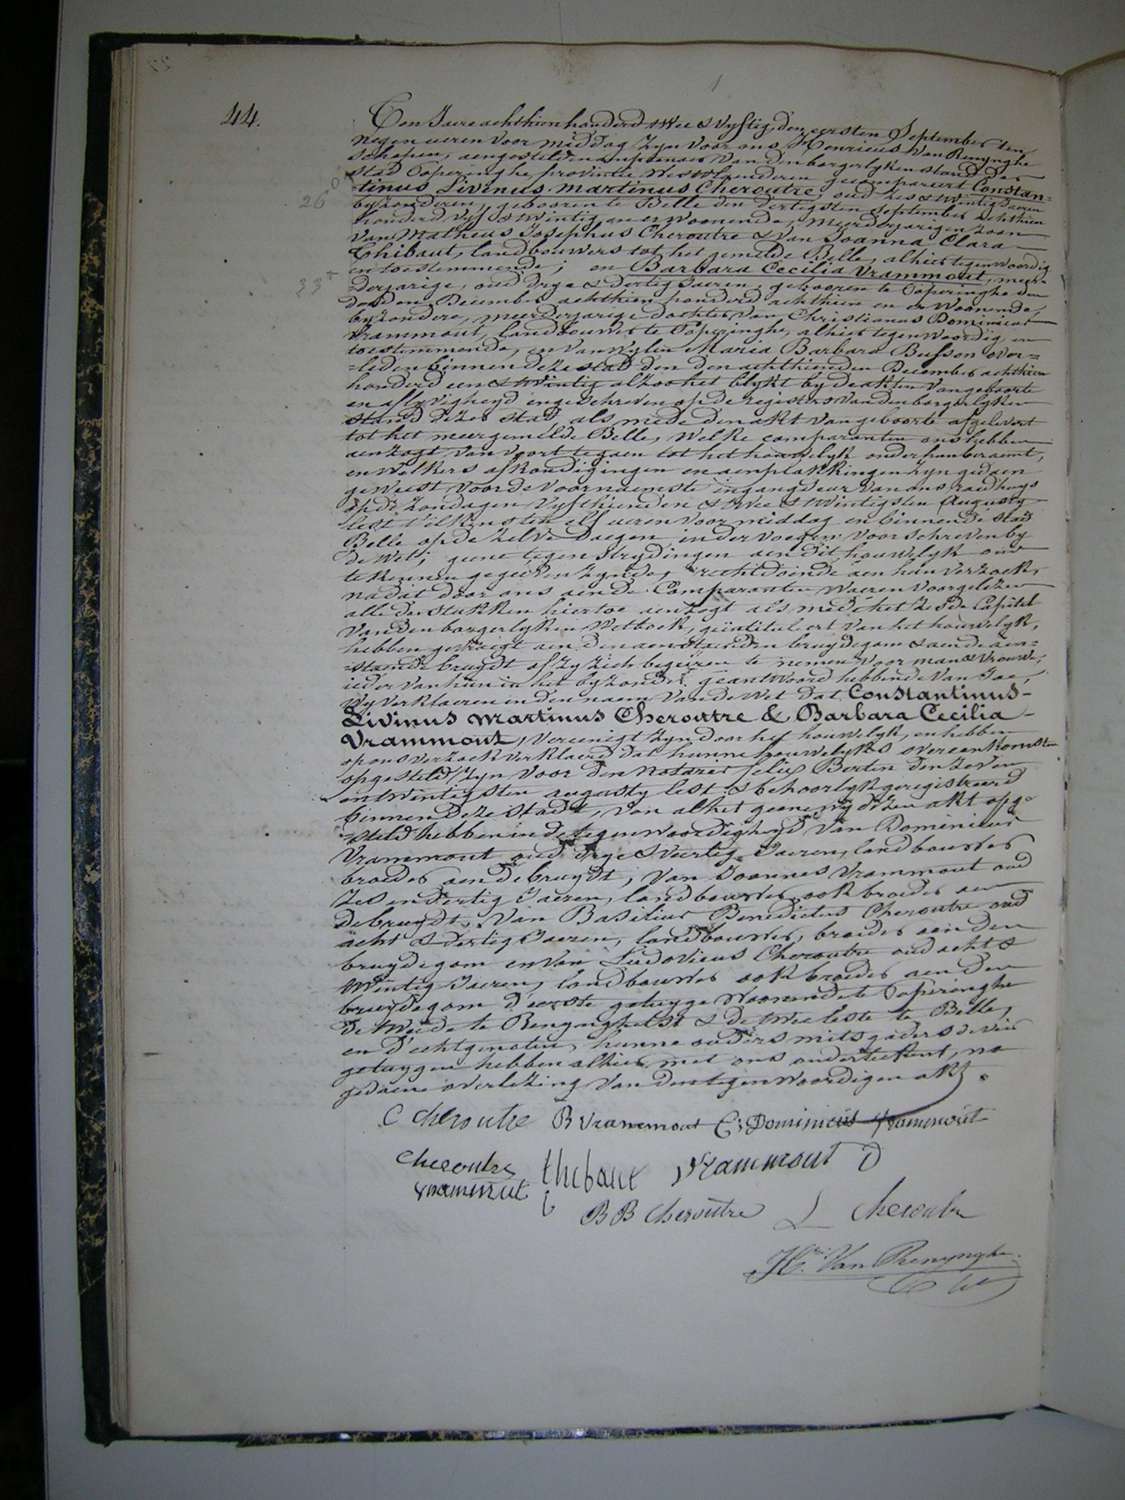 44.
Ten Jaere achthien honderd twee & vyftig, den eersten September ten
negen ueren voor middag zyn voor ons Henricus Van Renynghe
schepen, aengestelden ampenaer van den borgerlyken stand der
stad Poperinghe provintie Westvlaenderen gecompareert Constan=
=tinus Livinus Martinus Cheroutre oud zes & twintig Jaeren
byzonderen, gebooren te Belle den dertigsten September achthien
honderd vyf & twintig en er woonende, meerderjarigen zoon
van Matheus Josephus Cheroutre & van Joanna Clara
Thibaut, landbouwers tot het gemelde Belle, alhier tegenwoordig
en toestemmende; en Barbara Cecilia Vrammout, meer=
derjarige, oud drye & dertig Jaeren, gebooren te Poperinghe den
December achthien honderd achthien en er woonende,
byzondere, meerderjarige dochter van Christianus Dominicus
Vrammout, landbouwer te Poperinghe, alhier tegenwoordig en
toestemmende, en van wylen Maria Barbara Busson over=
=leden binnen deze stad den achthienden December achthien
honderd een & twintig alzoo het blykt by de akten van geboorte
en aflyvigheyd ingeschreven op de registers van den borgerlyken
stand dezer stad als mede den akt van geboorte afgelevert
tot het meergemelde Belle, welke comparanten ons hebben
aenzogt, van voort te gaen tot het houwelyk onder hun beraemt,
en welkers afkondigingen en aenplakkingen zyn gedaen
geweest voor de voornaemste ingangdeur van ons raedhuys
op de zondagen vyfthienden & twee & twintigsten Augusty
lest t'elkens ten elf ueren voor middag en binnen de stad
Belle op de zelve daegen in der voegen voorschreven by
de Wet; geene tegenstrydingen aen dit houwelyk ons
te kennen gegeven zynde, rechtdoende aen hun verzoek,
na dat door ons aen de Comparanten waeren voorgelezen
alle de stukken hiertoe aenzogt als mede het zesde Capittel
van den borgerlyken Wetboek, geïntituleert van het houwelyk,
hebben gevraegt aen den aenstaenden bruydegom & aen de aen=
=staende bruydt of zy zich begeiren te nemen voor man & vrouwe,
ieder van hun in het byzonder geantwoord hebbende van Jae,
wy verklaeren in den naem van de Wet dat Constantinus-
Livinus Martinus Cheroutre & Barbara Cecilia
Vrammout, vereenigt zyn door het houwelyk, en hebben
op ons verzoek verklaerd dat hunne houwelyks overeenkomsten
opgesteld zyn voor den Notaris Felix Bertin den zeven
en twintigsten augusty lest & behoorlyk geregistreerd
binnen deze stad, van al het geene wy dezen akt opge-
steld hebben in de tegenwoordigheyd van Dominicus
Vrammout oud drye & veertig Jaeren, landbouwer
broeder aen de bruydt, van Joannes Vrammout oud
zes en dertig Jaeren, landbouwer ook broeder aen
de bruydt, van Basilius Benedictus Cheroutre oud
acht & dertig Jaeren, landbouwer, broeder aen den
bruydegom en van Ludovicus Cheroutre oud acht &
twintig Jaeren, landbouwer ook broeder aen den
bruydegom d'eerste getuyge woonende te Poperinghe
de tweede te Renynghelst & de twee leste te Belle,
en d'echtgenoten, hunne ouders mitsgaders de vier
getuygen hebben alhier met ons onderteekent, na
gedaene overlezing van den tegenwoordigen akt.
C Cheroutre B Vrammout C: Dominicus Vrammout
Cheroutre Thibaut Vrammout D
Vrammout
B B Cheroutre L Cheroutre
Hri Van Renynghe